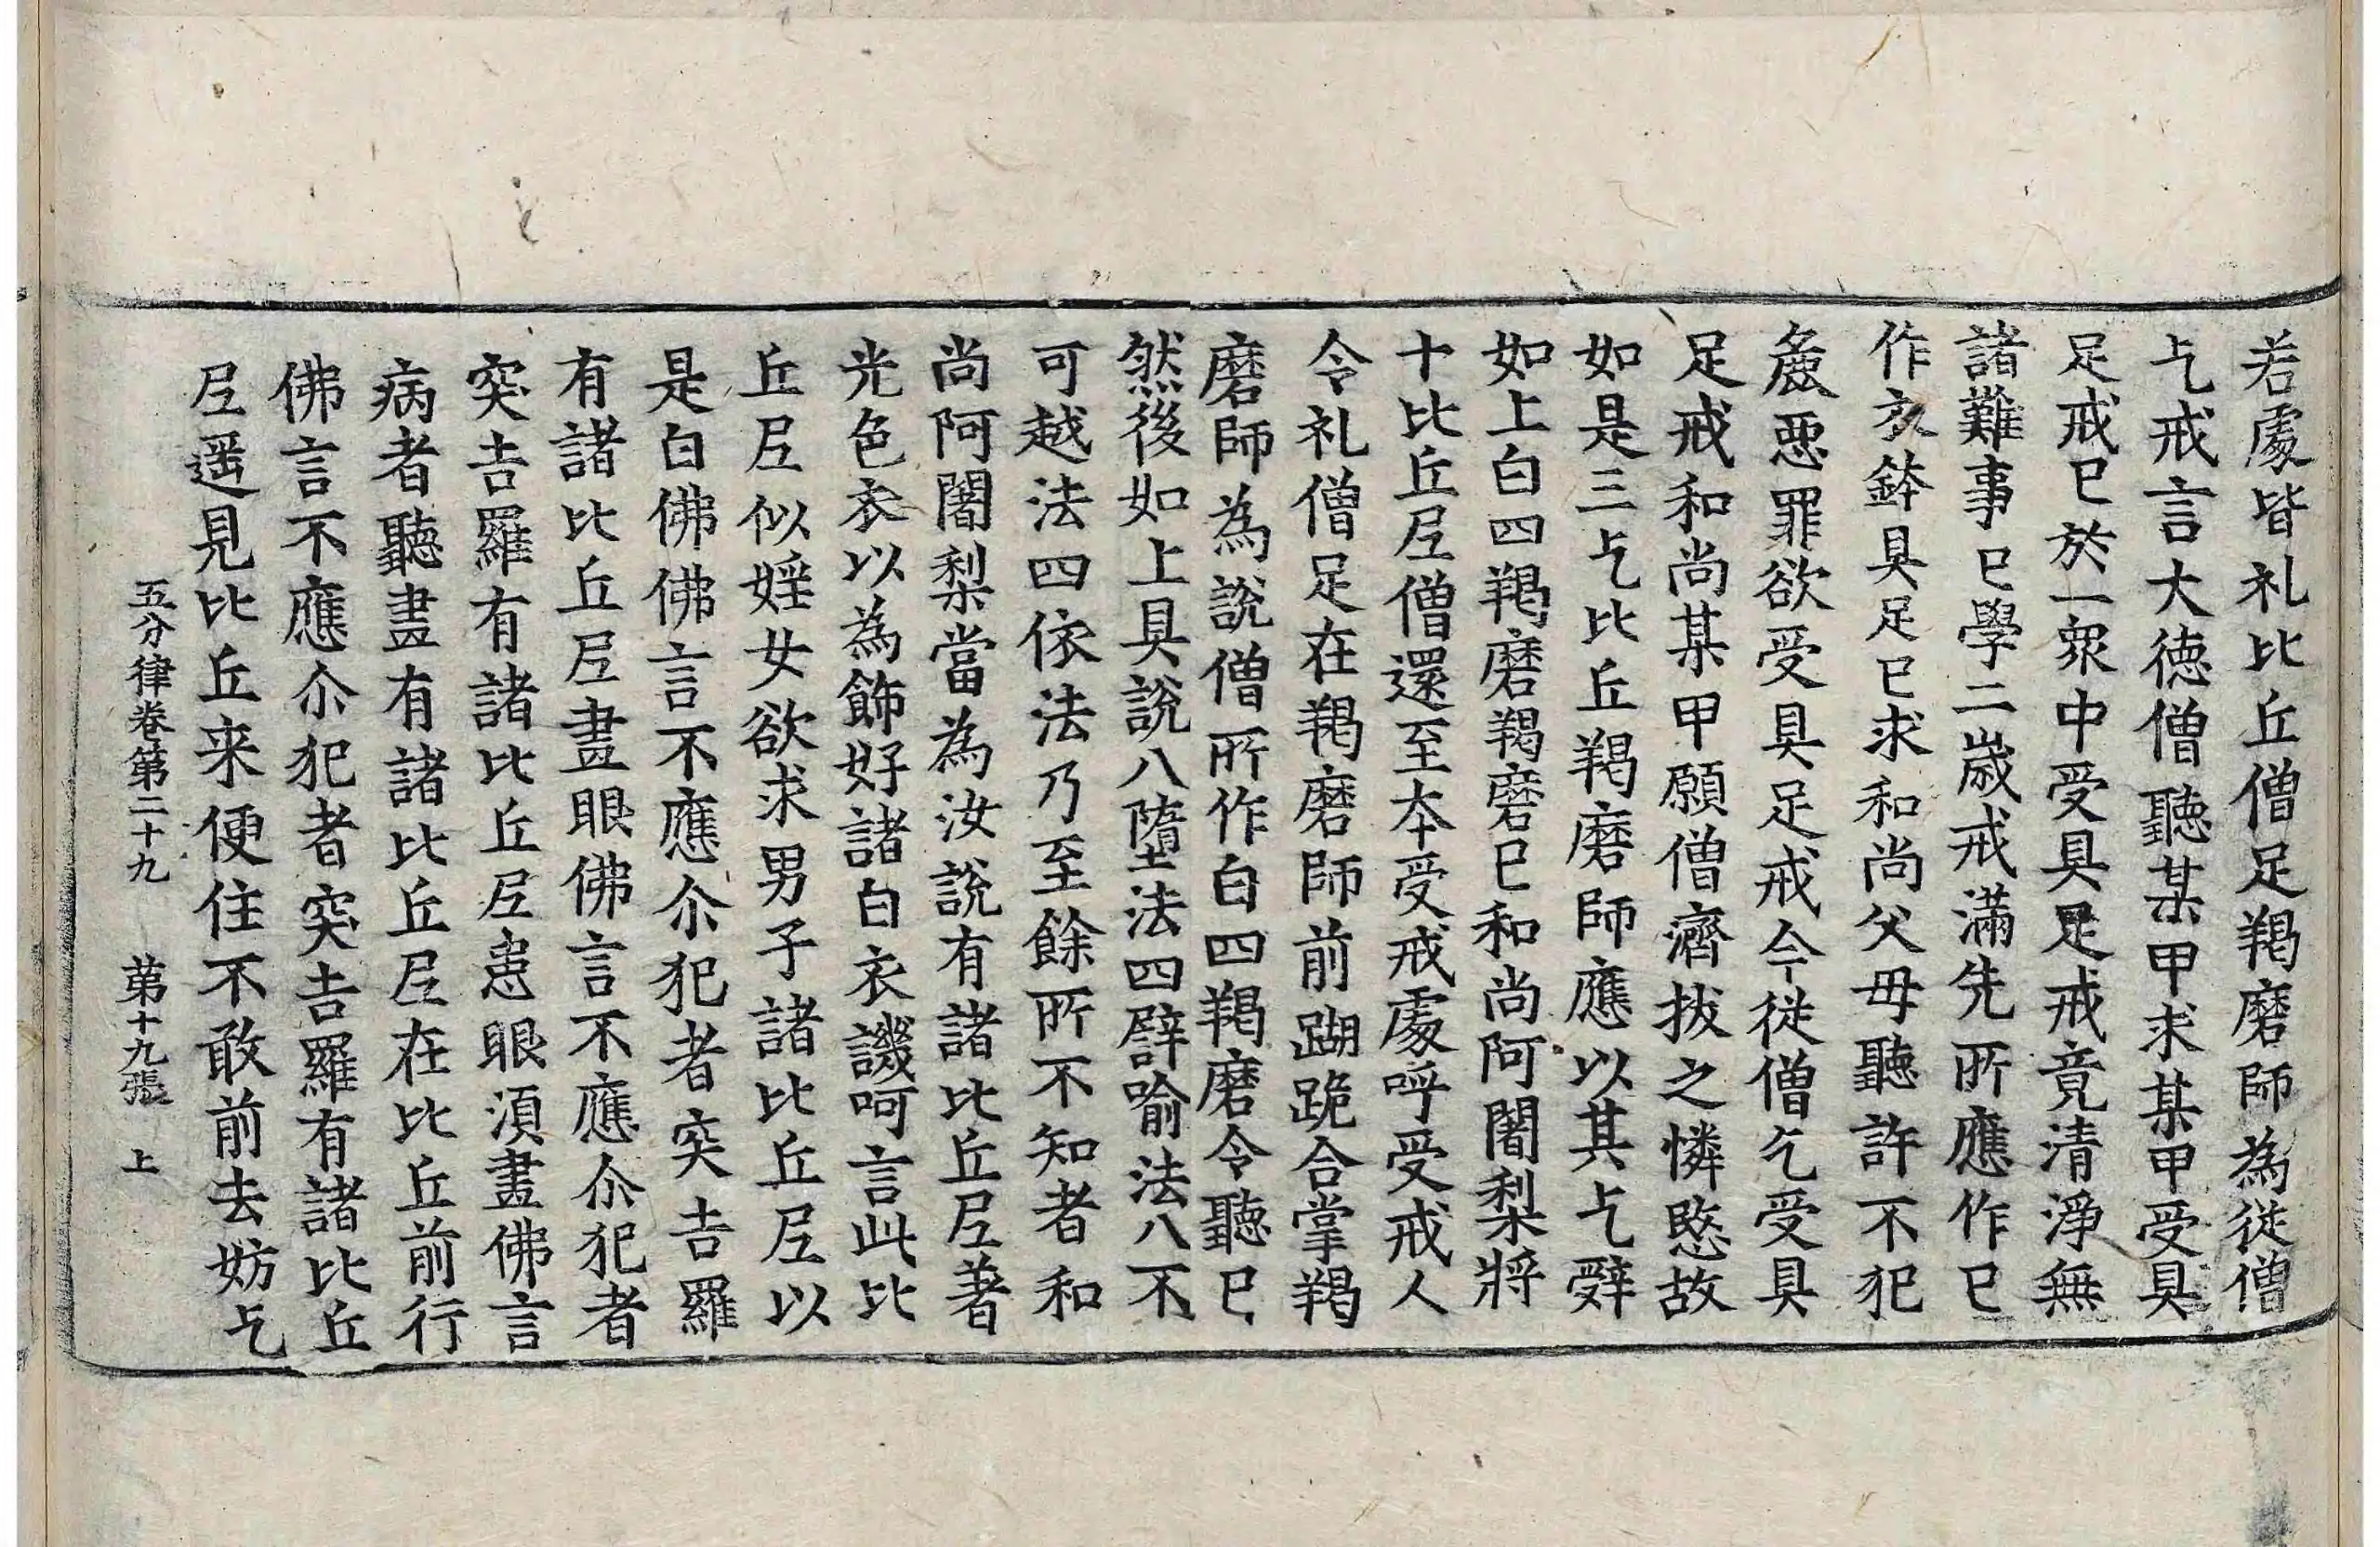 若處皆礼比丘僧足羯磨師為從僧
乞戒言大徳僧聽某甲求某甲受具
足戒已於一衆中受具足戒竟清淨無
諸難事已學二歲戒滿先所應作已
作衣鉢具足已求和尚父母聽許不犯
麁惡罪欲受具足戒今從僧乞受具
足戒和尚某甲願僧濟拔之憐愍故
如是三乞比丘羯磨師應以其乞辤
如上白四羯磨羯磨已和尚阿闍梨將
十比丘尼僧還至本受戒處呼受戒人
令礼僧足在羯磨師前䠒跪合掌羯
磨師為說僧所作白四羯磨令聽已
然後如上具說八墮法四譬喻法八不
可越法四依法乃至餘所不知者和
尚阿闍梨當為汝說有諸比丘尼著
光色衣以為飾好諸白衣譏呵言此比
丘尼似婬女欲求男子諸比丘尼以
是白佛佛言不應尒犯者突吉羅
有諸比丘尼畫眼佛言不應尒犯者
突吉羅有諸比丘尼患眼須畫佛言
病者聽畫有諸比丘尼在比丘前行
佛言不應尒犯者突吉羅有諸比丘
尼遥見比丘来便住不敢前去妨乞
五分律卷第二十九　第十九張　上